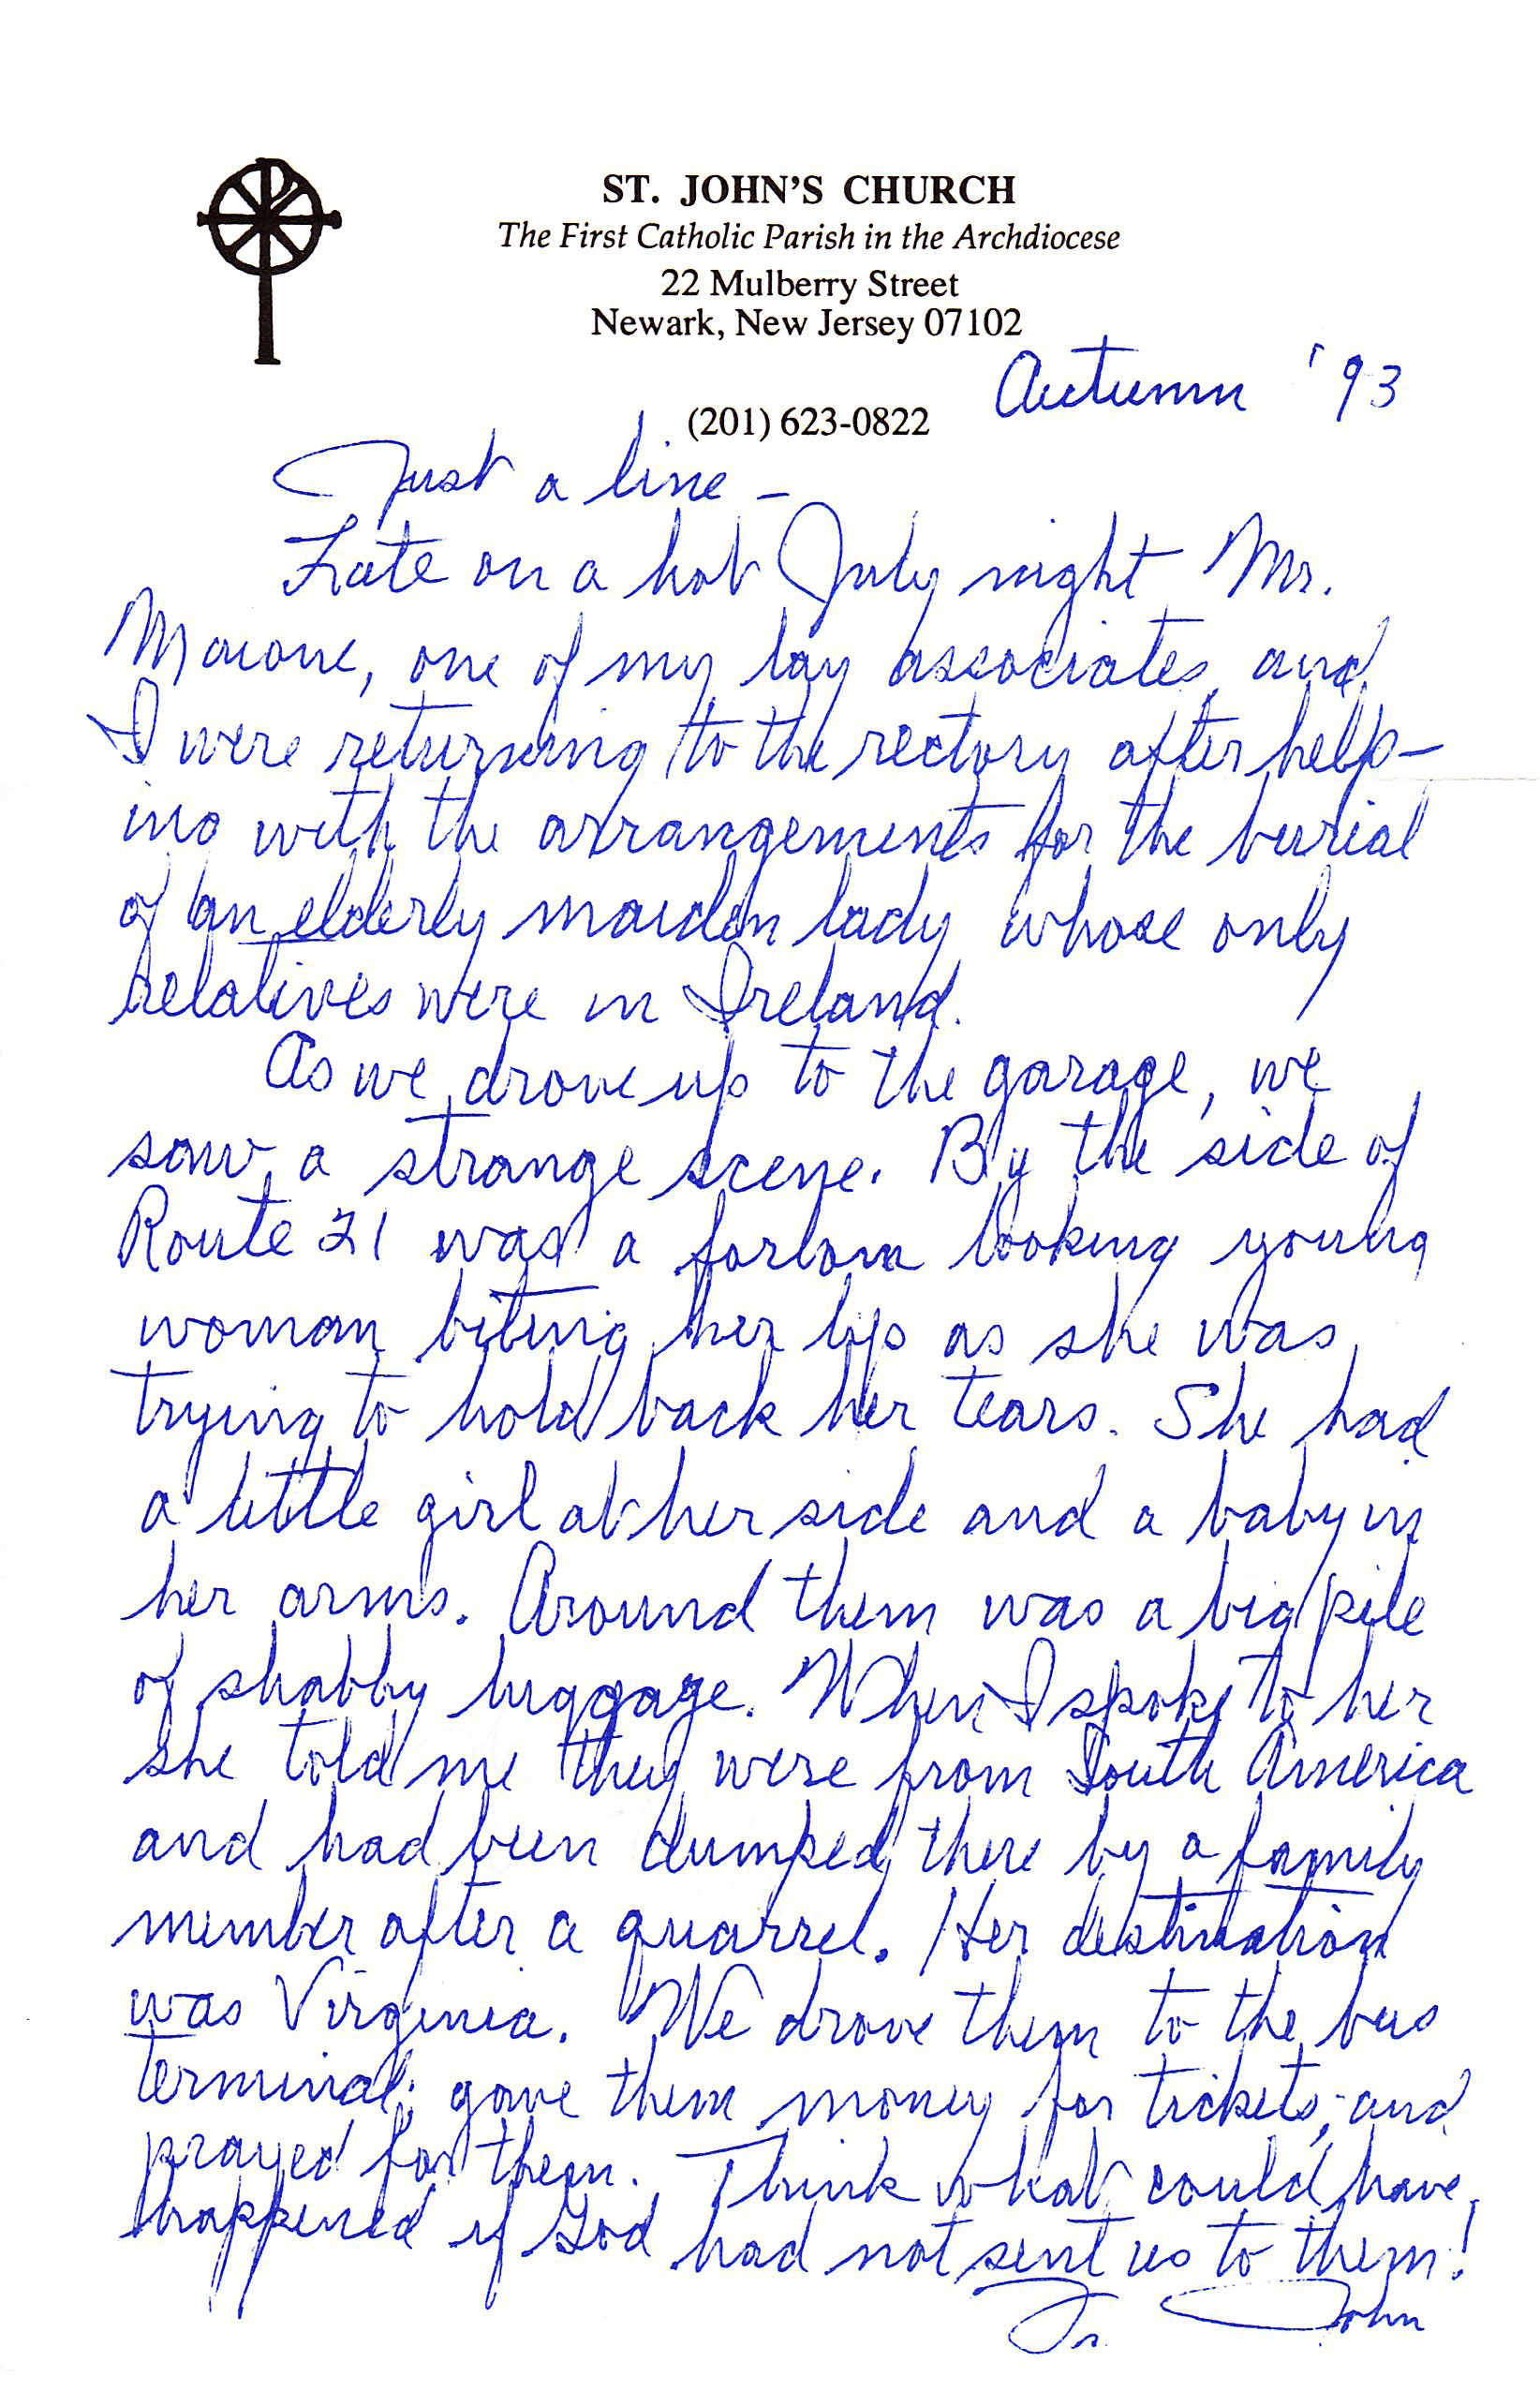 ST. JOHN'S CHURCH
The First Catholic Parish in the Archdiocese
22 Mulberry Street
Newark, New Jersey 07102
Autumn '93
(201) 623-0822
Just a line -
Late on a hot July night Mr.
Maione, one of my lay associates, and
I were returning to the rectory after help-
ing with the arrangements for the burial
of an elderly maiden lady whose only
relatives were in Ireland.
As we drove up to the garage, we
saw a strange scene. By the side of
Route 21 was a forlorn looking young
woman biting her lip as she was
trying to hold back her tears. She had
a little girl at her side and a baby in
her arms. Around them was a big pile
of shabby luggage. When I spoke to her
she told me they were from South America
and had been dumped there by a family
member after a quarrel. Her destination
was Virginia. We drove them to the bus
terminal; gave them money for tickets; and
prayed for them. Think what could have
happened if God had not sent us to them!
Fr. John